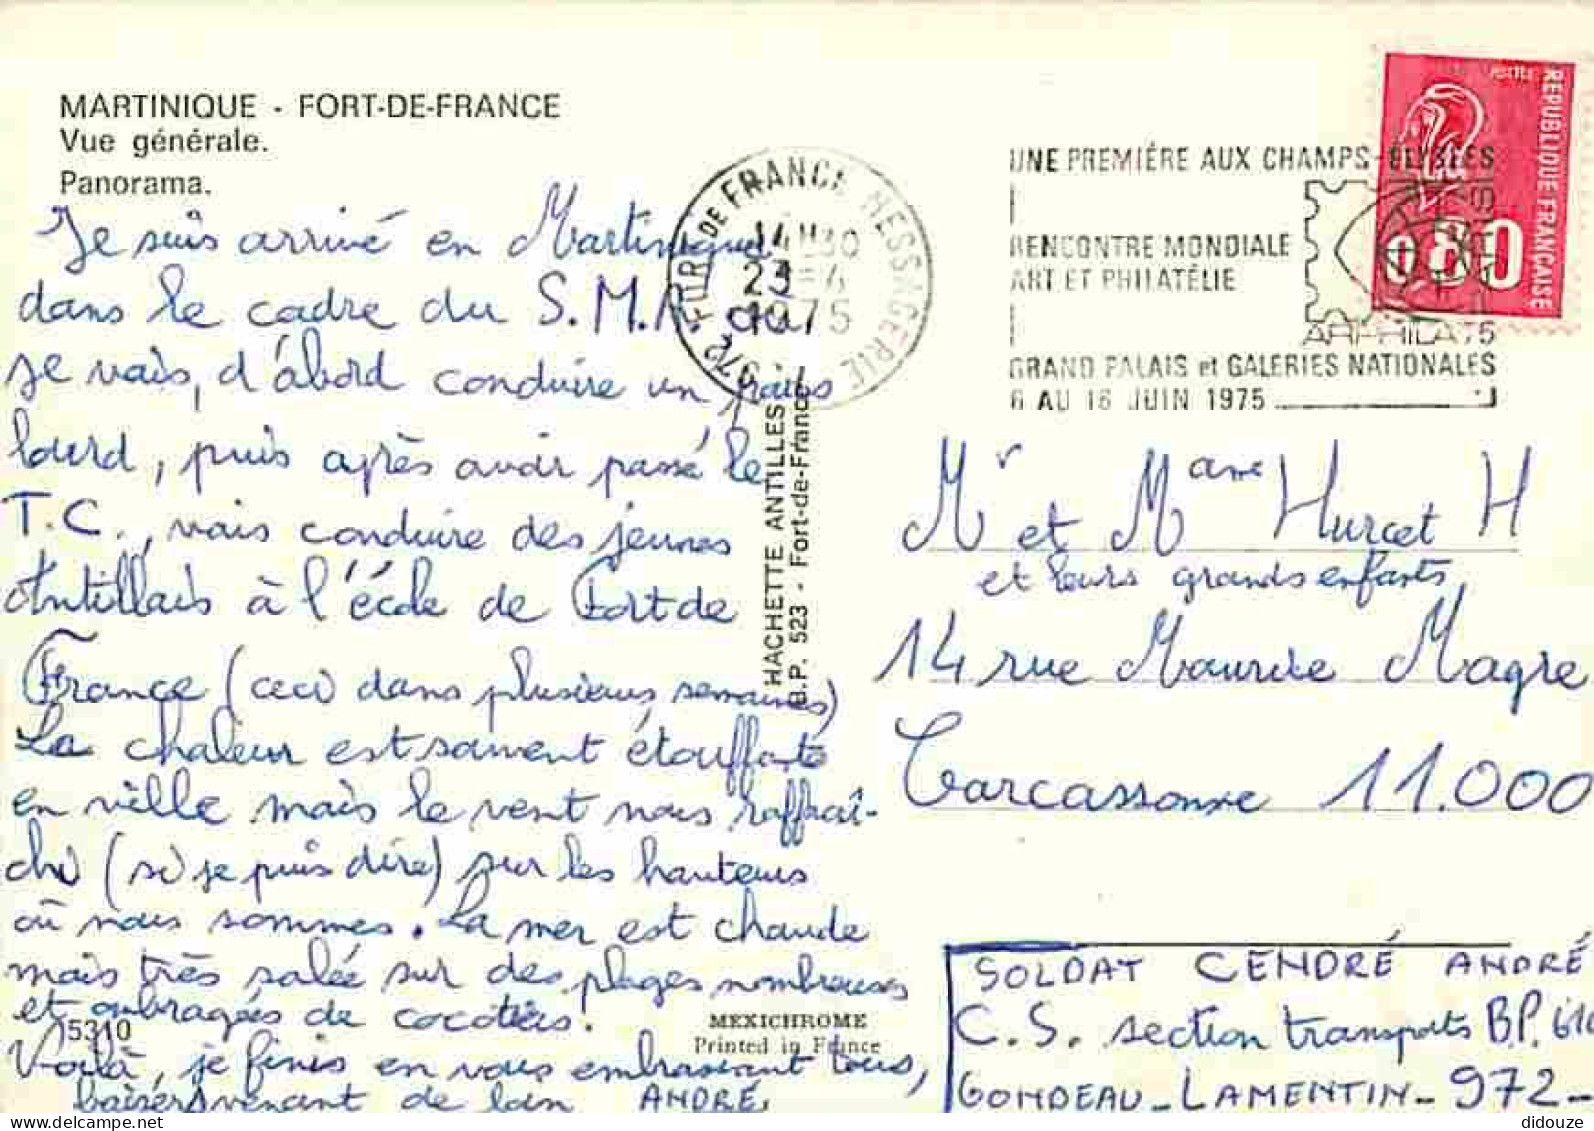 MARTINIQUE - FORT-DE-FRANCE
Vue générale.
Panorama.
Je suis arrivé en Martinique
dans le cadre du S.M.A. où
je vais, d'abord conduire un poids
lourd, puis après avoir passé le
T.C., vais conduire des jeunes
Antillais à l'école de Fort de
France (ceci dans plusieurs semaines)
La chaleur est souvent étouffante
en ville mais le vent nous raffraî-
chi (si je puis dire) sur les hauteurs
où nous sommes. La mer est chaude
mais très salée sur des plages nombreuses
et ombragées de cocotiers.
Voilà, je finis en vous embrassant tous,
baisers venant de loin ANDRÉ
5310
FORT DE FRANCE MESSAGERIE
972
14H30
23 -4
1975
HACHETTE ANTILLES
B.P. 523 - Fort-de-France
MEXICHROME
Printed in France
UNE PREMIÈRE AUX CHAMPS-ELYSÉES
RENCONTRE MONDIALE
ART ET PHILATÉLIE
ARPHILA 75
PARIS
GRAND PALAIS et GALERIES NATIONALES
6 AU 16 JUIN 1975
POSTES
REPUBLIQUE FRANÇAISE
0,80
Mr et Mame Hurcet H
et leurs grands enfants
14 rue Maurice Magre
Carcassonne 11.000
SOLDAT CENDRÉ ANDRÉ
C.S. section transports B.P. 616
GONDEAU - LAMENTIN - 972 -
© didouze